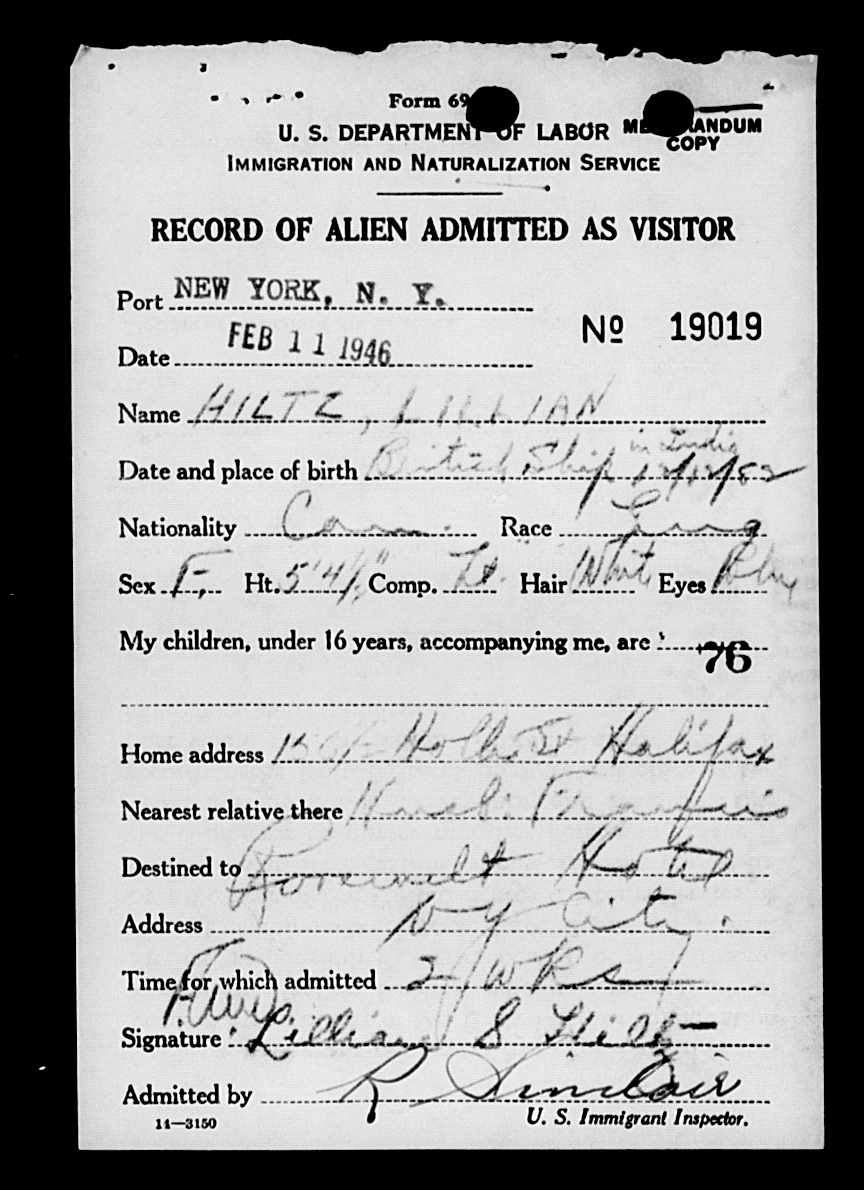 Form 69
U. S. DEPARTMENT OF LABOR
MEMORANDUM
COPY
IMMIGRATION AND NATURALIZATION SERVICE
RECORD OF ALIEN ADMITTED AS VISITOR
Port NEW YORK, N. Y.
Nº 19019
Date FEB 11 1946
Name HILTZ, LILLIAN
in India
Date and place of birth British Ship 12/12/82
Nationality Can. Race Eng
Sex F. Ht. 5'4½" Comp. Lt. Hair White Eyes Blu
My children, under 16 years, accompanying me, are
76
Home address Hollis St Halifax
Nearest relative there Husb. Francis
Destined to Roosevelt Hotel
Address N Y City.
Time for which admitted 2 wks
Signature Lillian S Hiltz
Admitted by R Sinclair
11—3150 U. S. Immigrant Inspector.